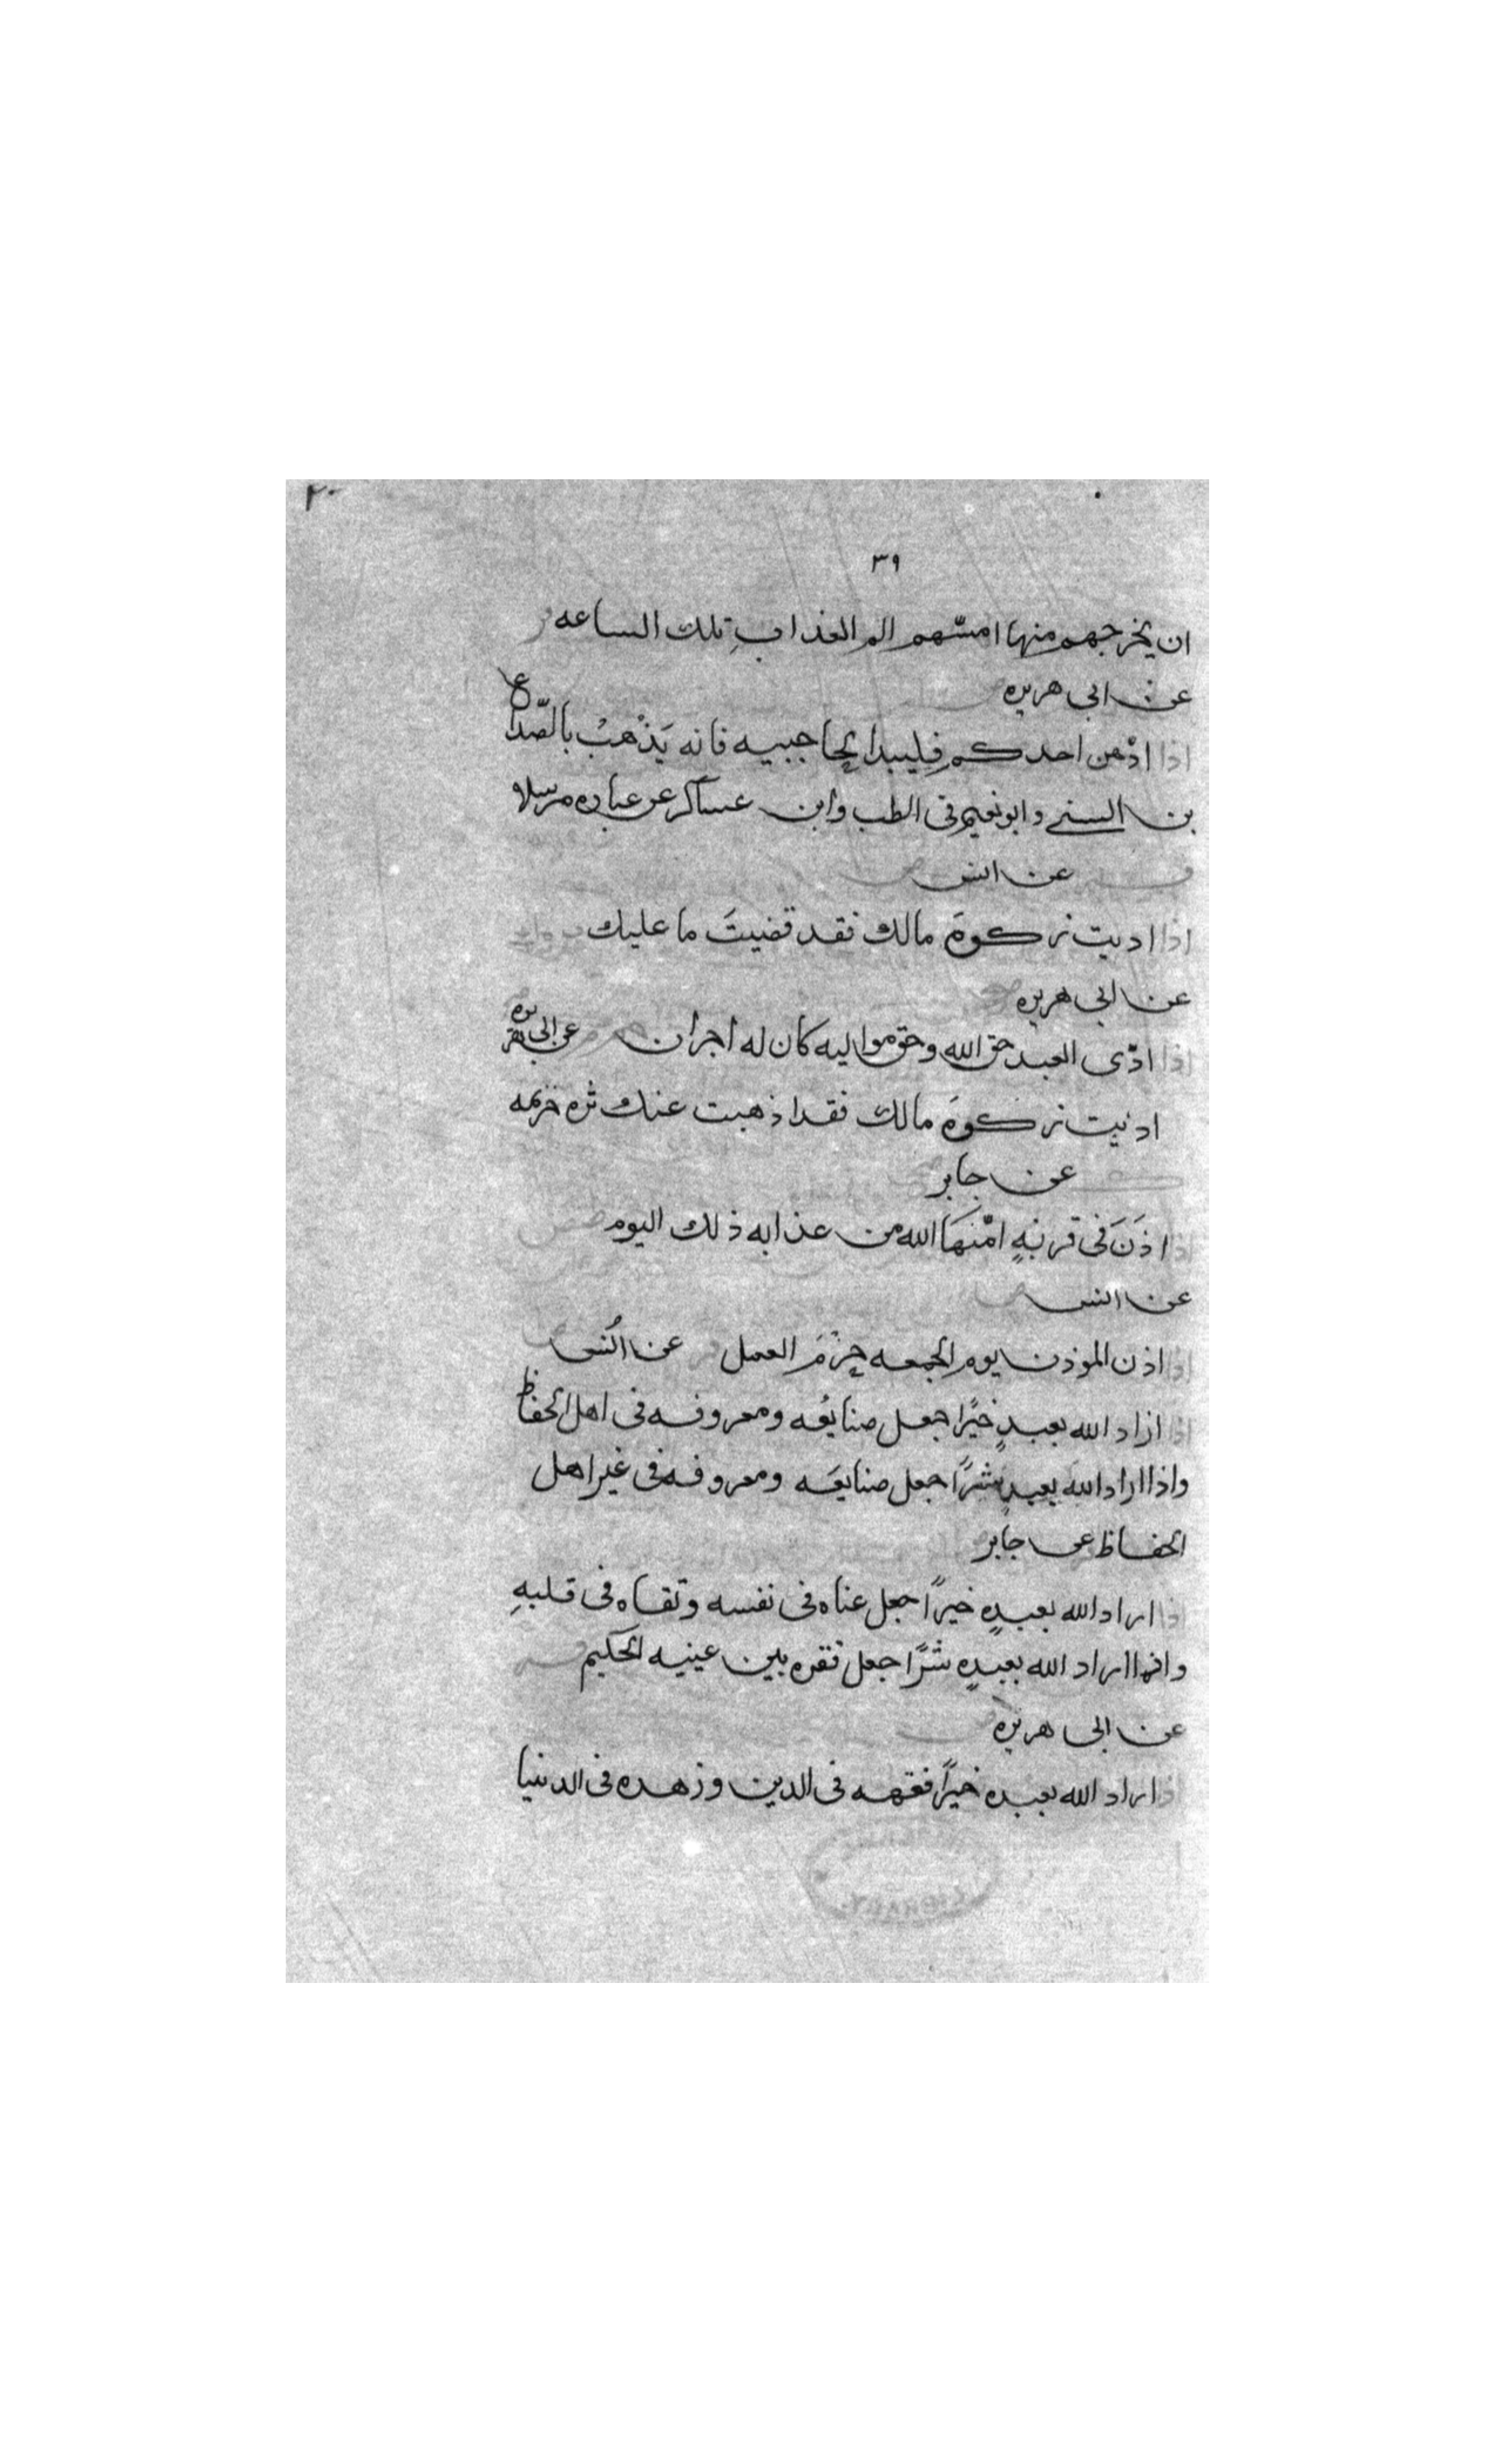 ٢٠
٣٩
ان يخرجهم منها امسّهم الم العذابِ تلك الساعه
عن ابى هريره
اذا ادّهن احدكم فليبدا بحاجبيه فانه يَذْهَبُ بالصّداع
بن السنى وابو نعيم فى الطب وابن عساكر عن عباده مرسلا
عن انس
اذا اديت زكوةَ مالك فقد قضيتَ ما عليك
عن ابى هريره
اذا ادّى العبد حق الله وحق مواليه كان له اجران عن ابى هريره
اديت زكوةَ مالك فقد اذهبت عنك شره خزيمه
عن جابر
اذا اذَنَ فى قريةٍ امّنَهَا الله من عذابه ذلك اليوم
عن انس
اذا اذن الموذن يوم الجمعه حرُمَ العمل عن انس
اذا اراد الله بعبدٍ خيرًا جعل صنايعُه ومعروفه فى اهل الحفاظ
واذا اراد الله بعبدٍ شرًا جعل صنايعَه ومعروفه فى غير اهل
الحفاظ عن جابر
اذا اراد الله بعبدٍه خيرًا جعل غناه فى نفسه وتقاه فى قلبهِ
واذا اراد الله بعبدٍه شرًا جعل فقره بين عينيه الحكيم
عن ابى هريره
اذا اراد الله بعبده خيرًا فقهه فى الدين وزهده فى الدنيا
LIBRARY